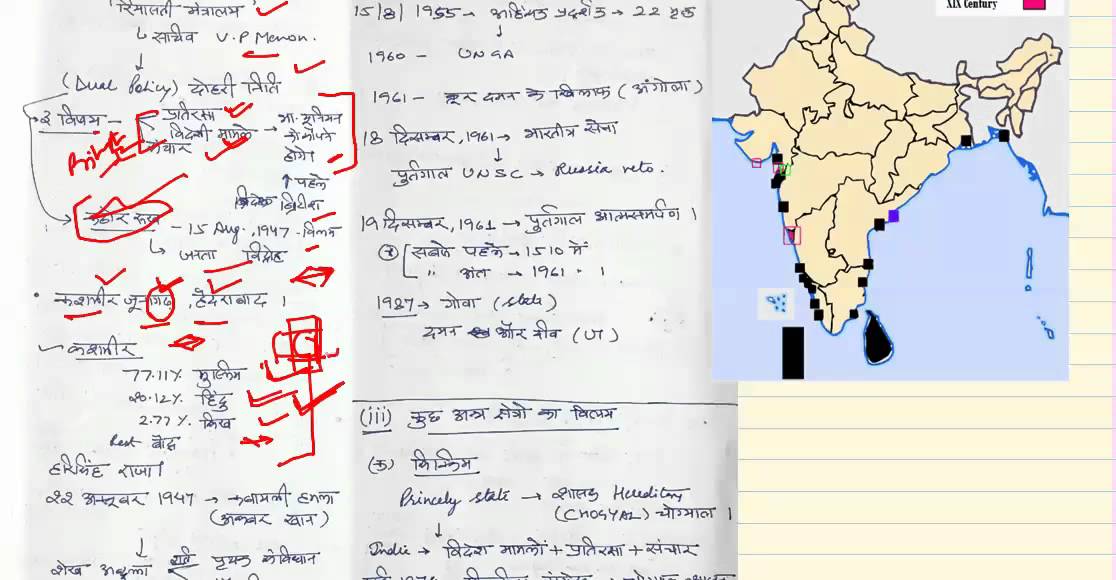 रियासती मंत्रालय
↳ सचिव V.P Menon.
(Dual Policy) दोहरी निति
→ ३ विषय – प्रतिरक्षा
विदेशी मामले → भा. यूनियन
संचार को सौंपने
होंगे।
↑ पहले
ब्रिटिश
कठोर रूख – 15 Aug, 1947 - विलय
↳ जनता विद्रोह
• कश्मीर, जूनागढ़, हैदराबाद ।
कश्मीर
77.11% मुस्लिम
20.12% हिंदु
2.77% सिख
Rest बौद्ध
हरिसिंह राजा।
२२ अक्टूबर 1947 → कबायली हमला
(अकबर खान)
शेख अब्दुल्ला शर्त पृथक संविधान
15/8/1955 → अहिंसक प्रदर्शन → 22 मृत
1960 – UNGA
1961 – क्रूर दमन के खिलाफ (अंगोला)
18 दिसम्बर, 1961 → भारतीय सेना
पुर्तगाल UNSC → Russia veto.
19 दिसम्बर, 1961 → पुर्तगाल आत्मसमर्पण ।
सबसे पहले → 1510 में
" अंत → 1961 " ।
1987 → गोवा (state)
दमन और दीव (UT)
(iii) कुछ अन्य क्षेत्रों का विलय
(क) सिक्किम
Princely state → शासक Hereditary
(CHOGYAL) चोग्याल ।
India → विदेश मामलों + प्रतिरक्षा + संचार
XIX Century